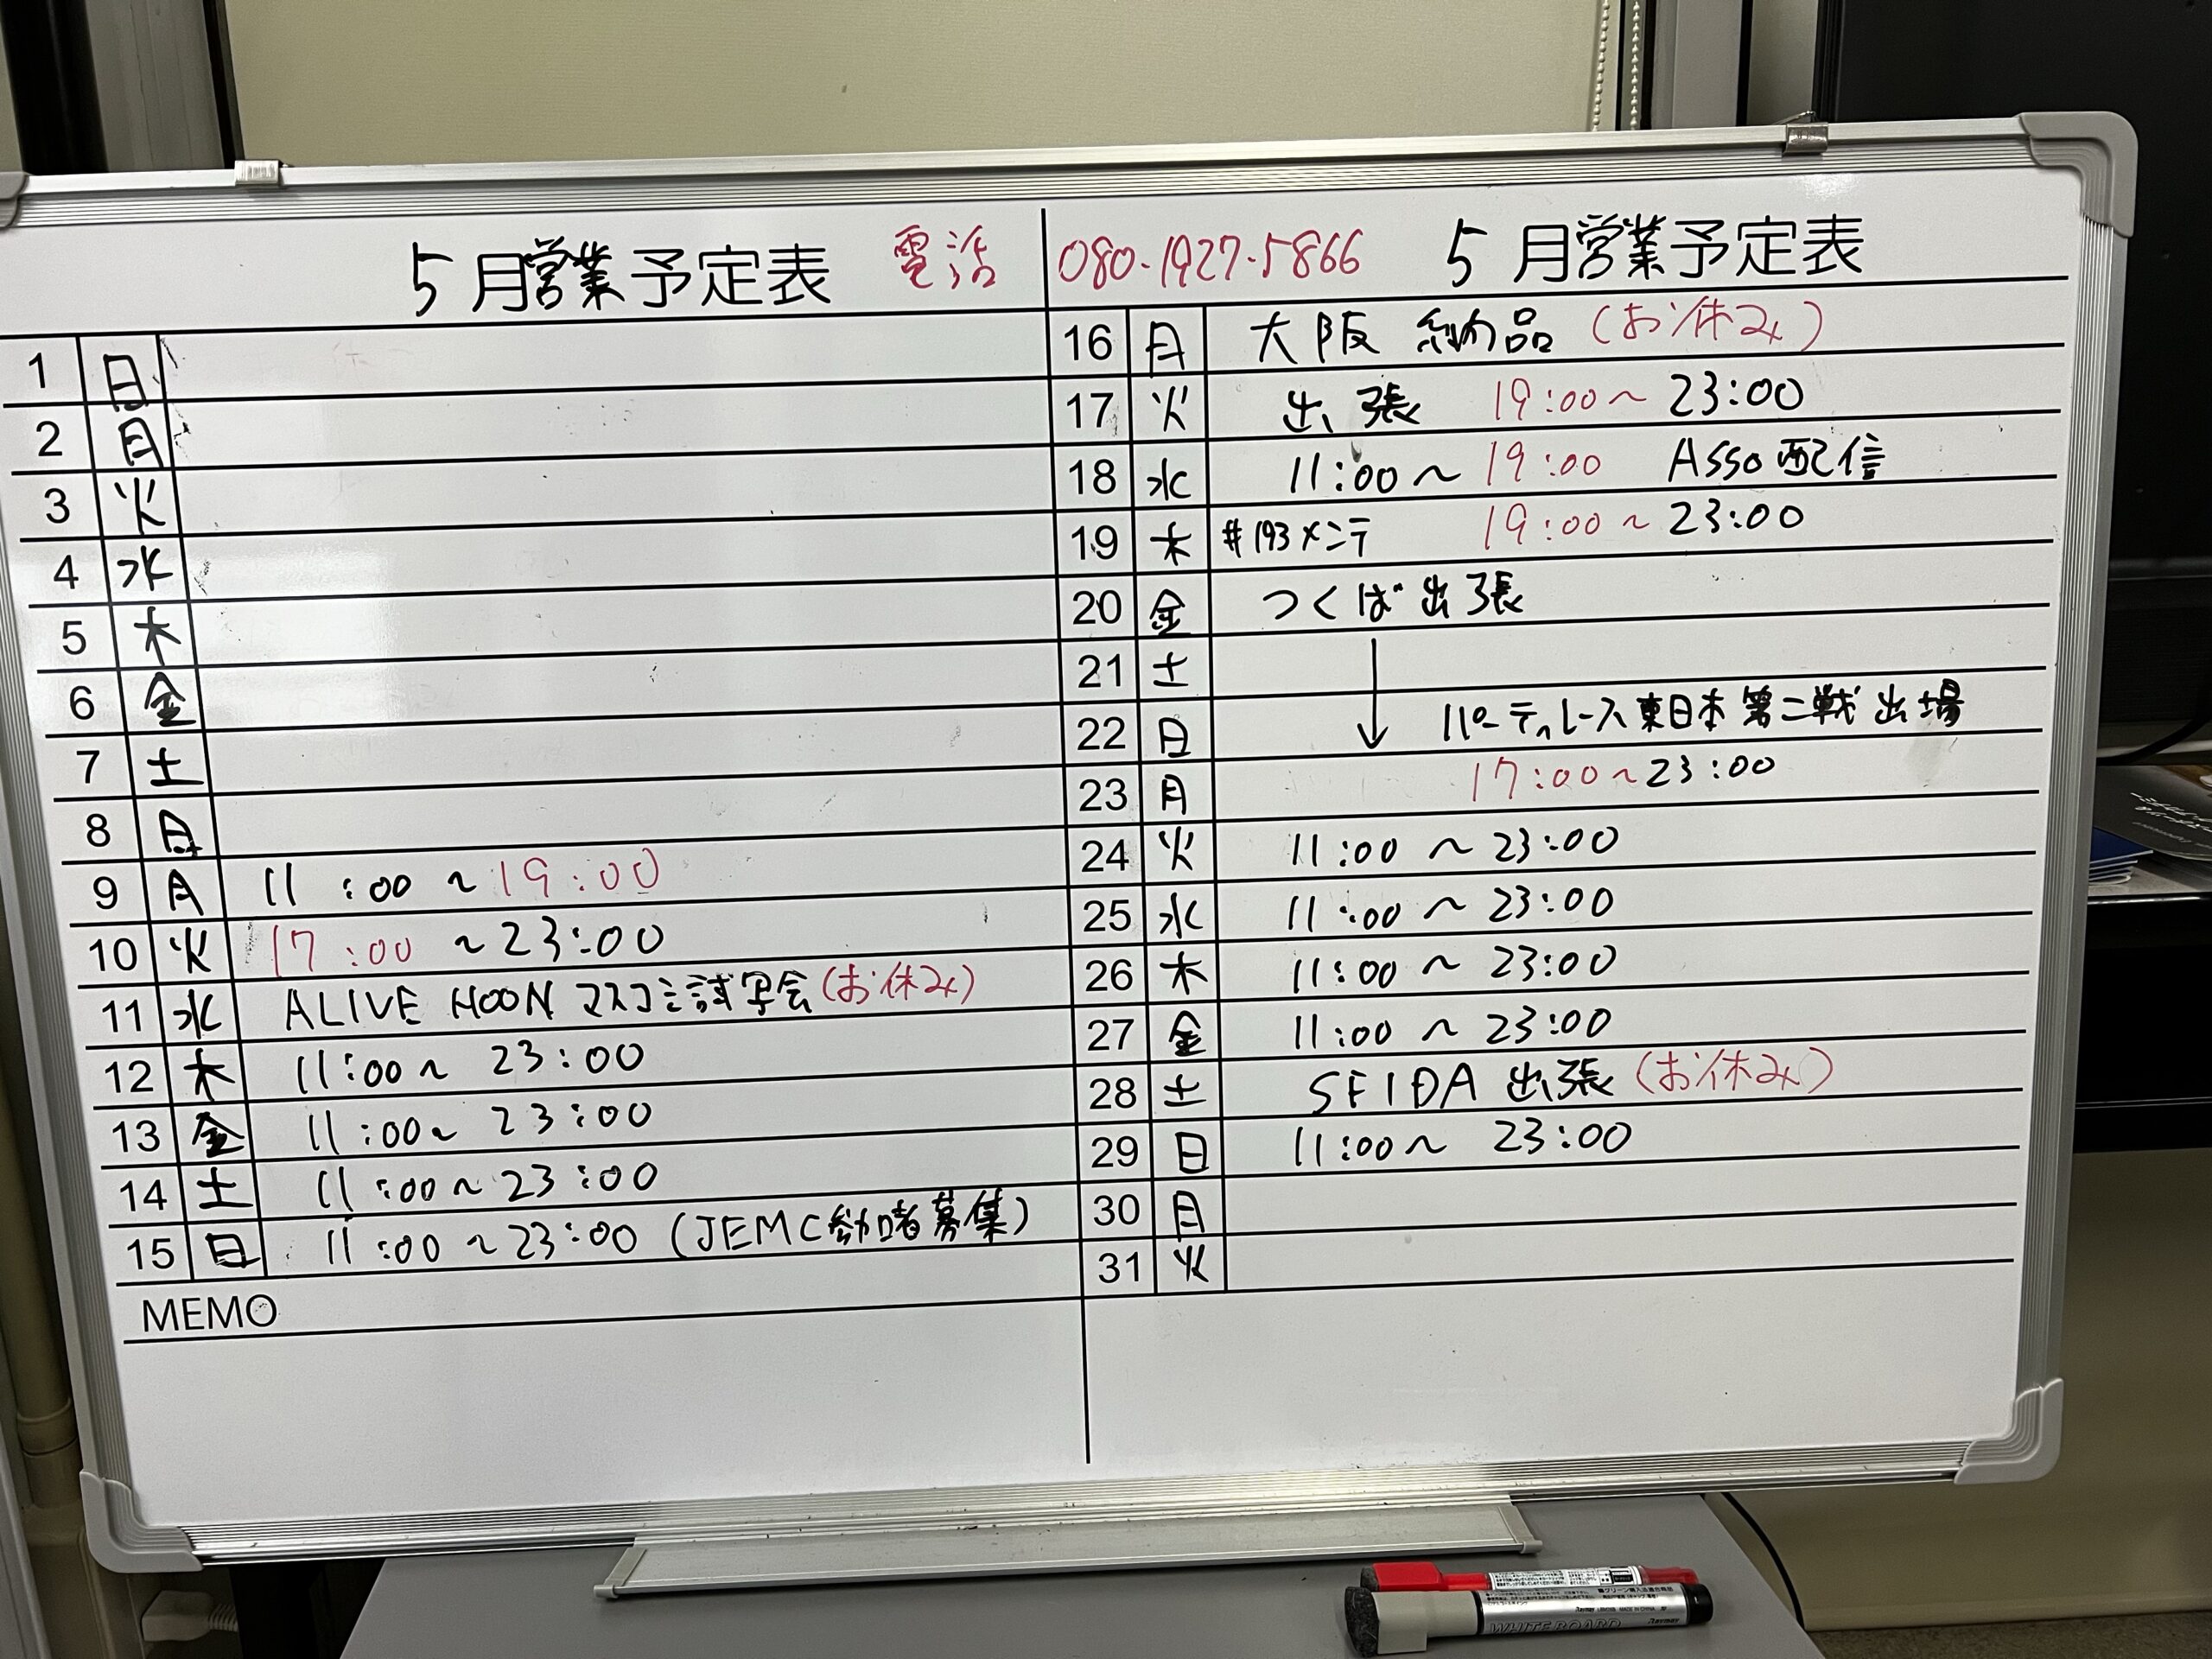 5月営業予定表 電話 080-1927-5866
1 日
2 月
3 火
4 水
5 木
6 金
7 土
8 日
9 月 11:00 ~ 19:00
10 火 17:00 ~ 23:00
11 水 ALIVE HOON マスコミ試写会(お休み)
12 木 11:00 ~ 23:00
13 金 11:00 ~ 23:00
14 土 11:00 ~ 23:00
15 日 11:00 ~ 23:00 (JEMC参加者募集)
MEMO
5月営業予定表
16 月 大阪 納品 (お休み)
17 火 出張 19:00 ~ 23:00
18 水 11:00 ~ 19:00 Asso配信
19 木 #193メンテ 19:00 ~ 23:00
20 金 つくば出張
21 土
22 日 パーティレース東日本第二戦出場
23 月 17:00 ~ 23:00
24 火 11:00 ~ 23:00
25 水 11:00 ~ 23:00
26 木 11:00 ~ 23:00
27 金 11:00 ~ 23:00
28 土 SFIDA 出張 (お休み)
29 日 11:00 ~ 23:00
30 月
31 火
WHITE BOARD